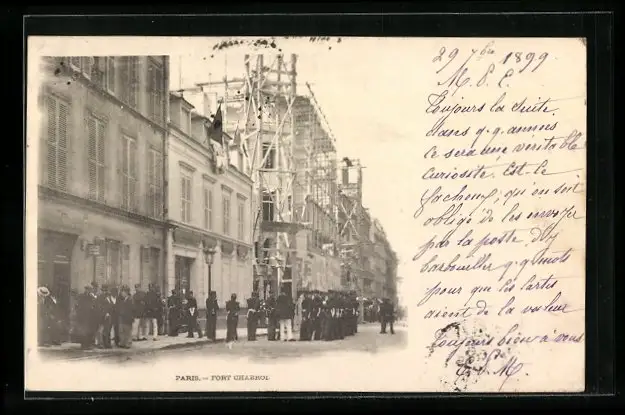 PARIS. — FORT CHABROL
29 7bre 1899
M. E. C.
Toujours la suite.
dans q.q. années
ce sera une véritable
curiosité. Est-ce
facheux, qu'on soit
obligé de les envoyer
par la poste, d'y
barbouiller q.q. mots
pour que les cartes
aient de la valeur
Toujours bien à vous
M.